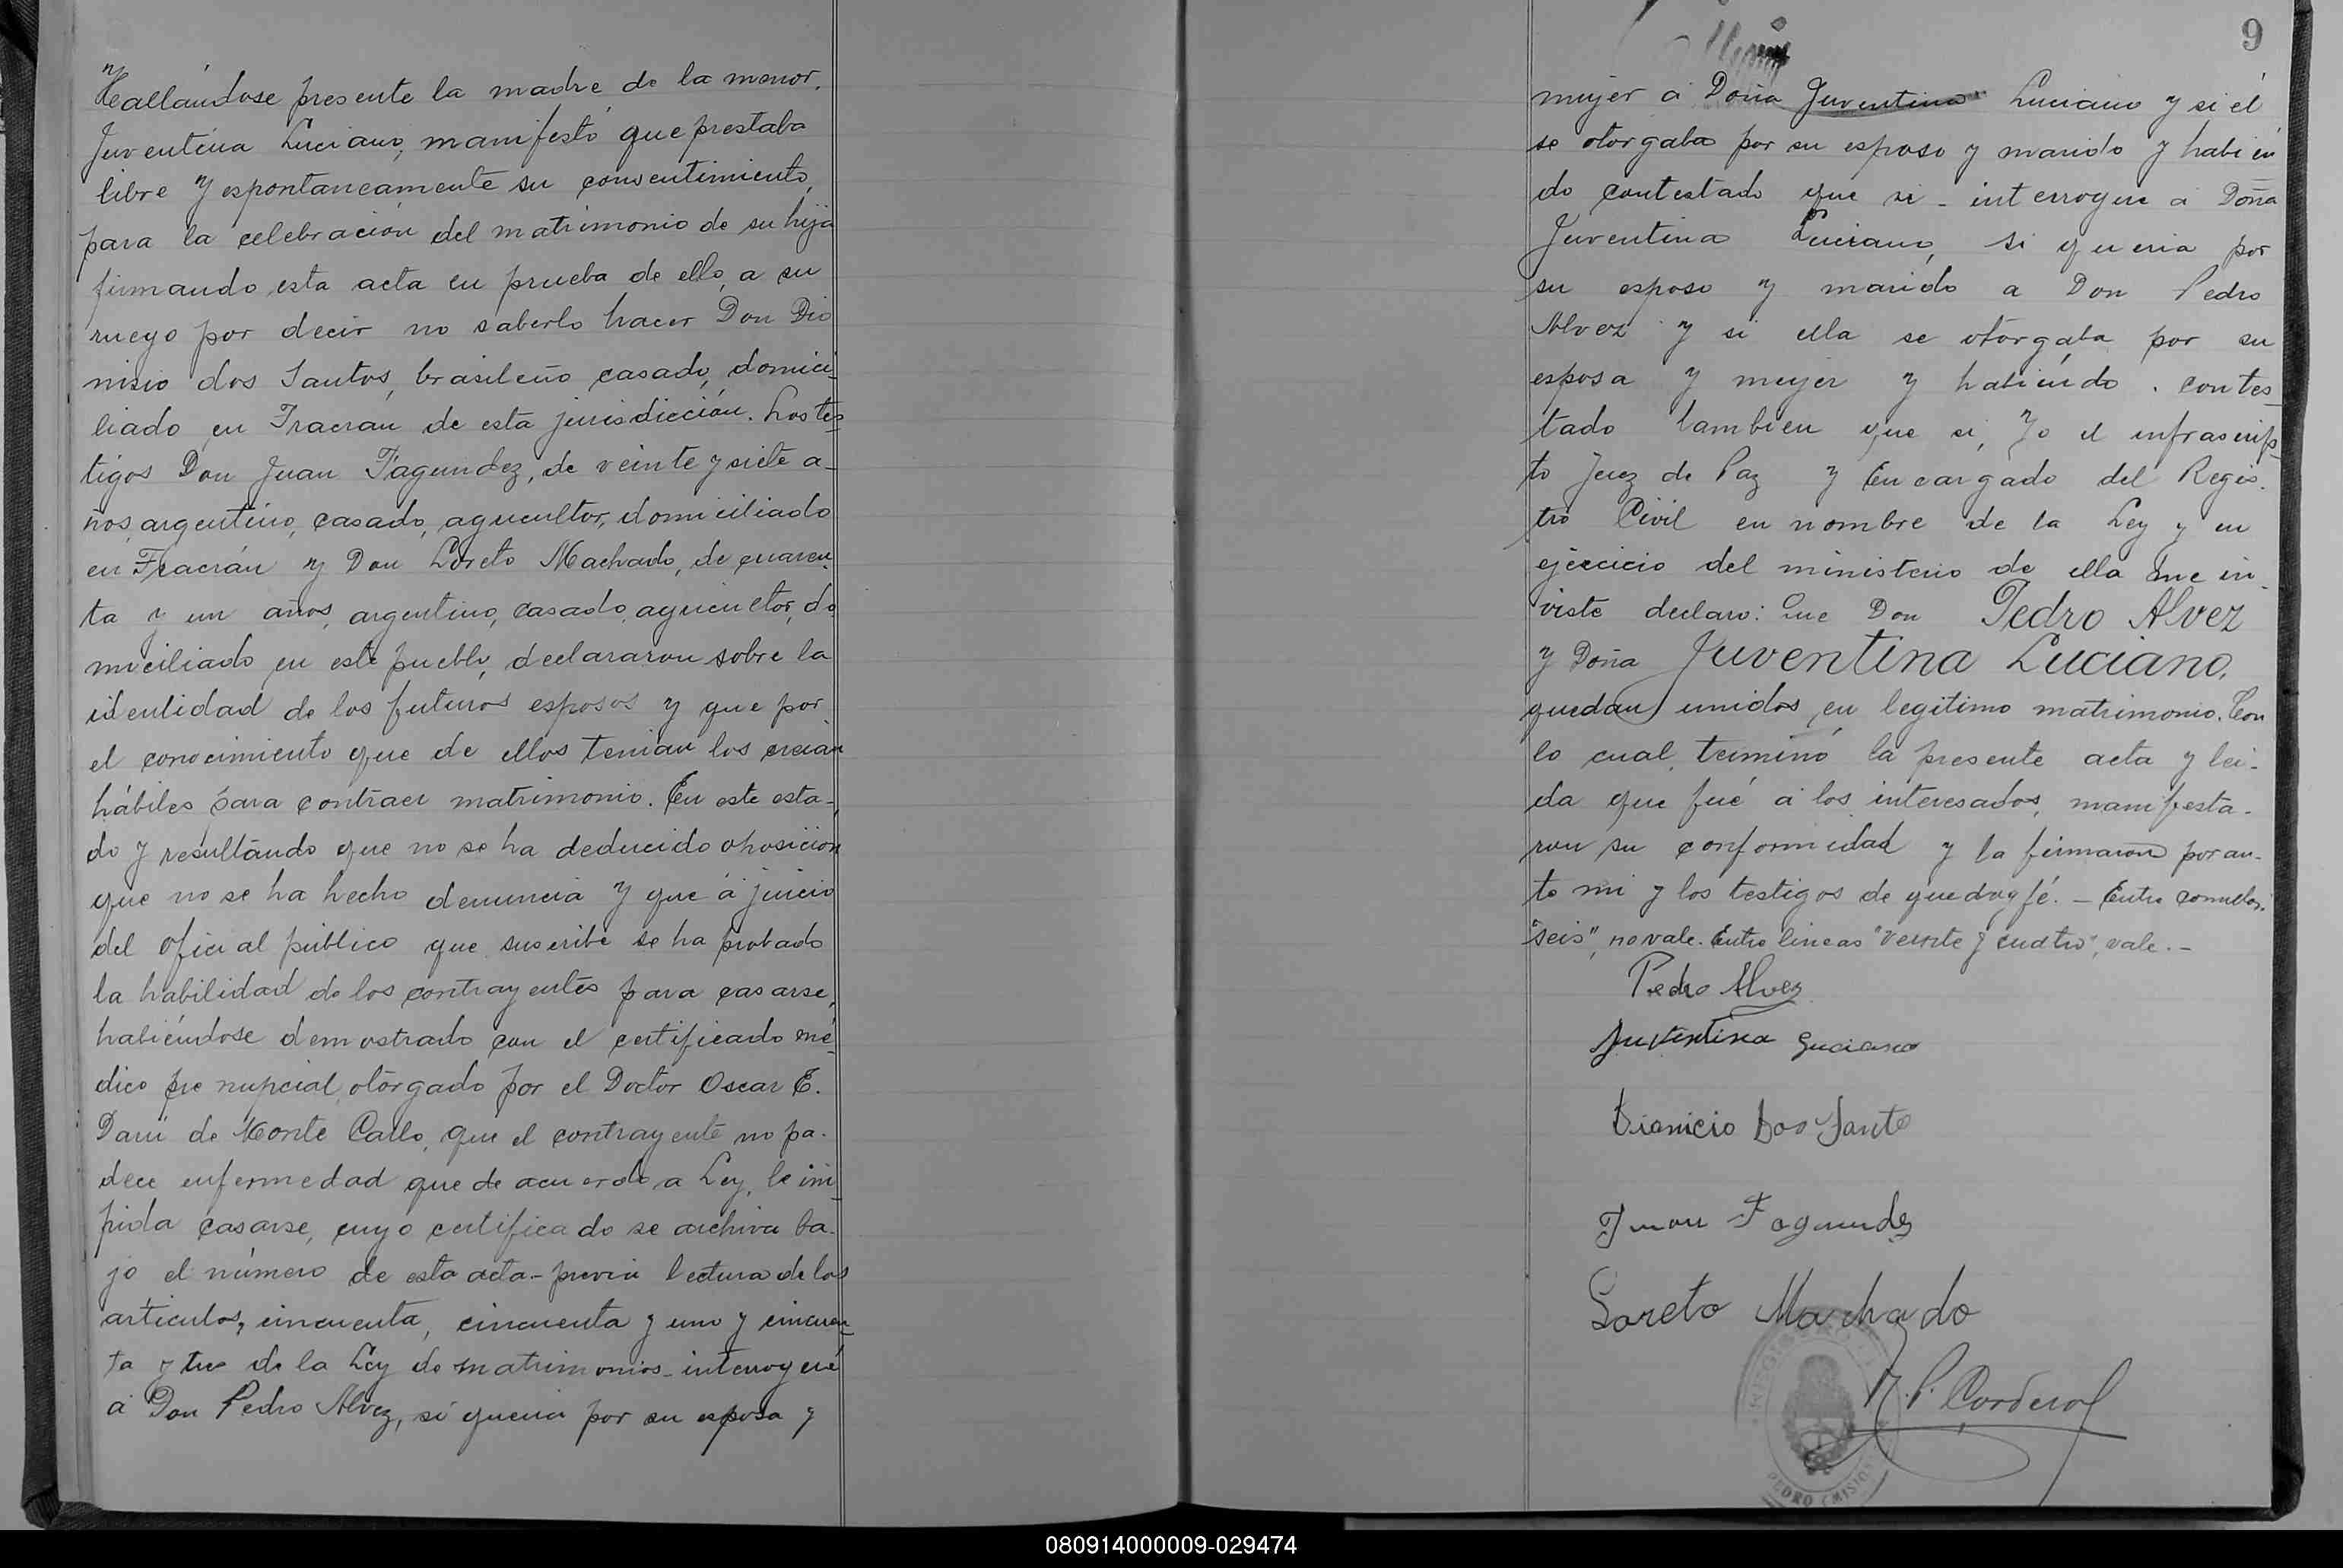 Hallándose presente la madre de la menor,
Juventina Luciano, manifestó que prestaba
libre y espontaneamente su consentimiento,
para la celebración del matrimonio de su hija
firmando esta acta en prueba de ello, a su
ruego por decir no saberlo hacer Don Dio
nisio dos Santos, brasileño casado, domici-
liado en Fracran de esta jurisdicción. Los tes-
tigos Don Juan Fagundez, de veinte y siete a-
ños, argentino, casado, agricultor, domiciliado
en Fracrán y Don Loreto Machado, de cuaren-
ta y un años, argentino, casado, agricultor, do-
miciliado en este pueblo, declararon sobre la
identidad de los futuros esposos y que por
el conocimiento que de ellos tenian los creian
hábiles para contraer matrimonio. En este esta-
do y resultando que no se ha deducido oposicion
que no se ha hecho denuncia y que á juicio
del oficial público que suscribe se ha probado
la habilidad de los contrayentes para casarse,
habiéndose demostrado con el certificado mé-
dico pre nupcial, otorgado por el Doctor Oscar E.
Darü de Monte Carlo, que el contrayente no pa-
dece enfermedad que de acuerdo a Ley, le im-
pida casarse, cuyo certificado se archiva ba-
jo el número de esta acta - previa lectura de los
artículos, cincuenta, cincuenta y uno y cincuen-
ta y tres de la Ley de matrimonios - interrogué
a Don Pedro Alvez, si queria por su esposa y
9
mujer a Doña Juventina Luciano y si él
se otorgaba por su esposo y marido y habién
do contestado que si - interrogue a Doña
Juventina Luciano, si queria por
su esposo y marido a Don Pedro
Alvez y si ella se otorgaba por su
esposa y mujer y habiendo contes-
tado tambien que si, Yo el infrascrip-
to Juez de Paz y Encargado del Regis-
tro Civil en nombre de la Ley y en
ejercicio del ministerio de ella me in-
viste declaro: Que Don Pedro Alvez
y Doña Juventina Luciano,
quedan unidos en legitimo matrimonio. Con
lo cual, terminó la presente acta y lei-
da que fué a los interesados, manifesta-
ron su conformidad y la firmaron por an-
te mi y los testigos de que doy fé. - Entre comillas.
"seis", no vale. Entre lineas "veinte y cuatro", vale. -
Pedro Alvez
Juventina Luciano
Dionicio Dos Santo
Juan Fagundez
Loreto Machado
Cordero
PEDRO (MISIO
080914000009-029474